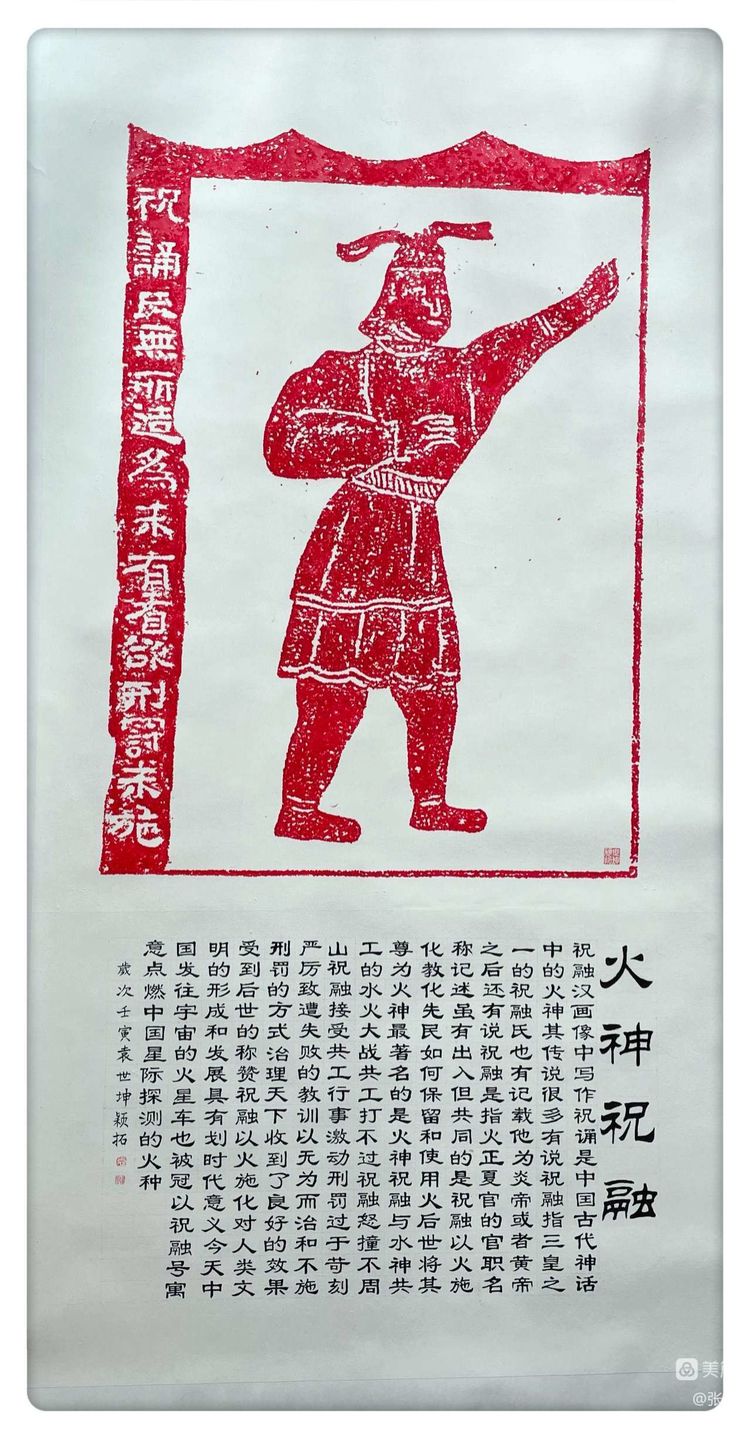 祝誦氏無所造為未有耆欲刑罰未施
火神祝融
祝融汉画像中写作祝诵是中国古代神话
中的火神其传说很多有说祝融指三皇之
一的祝融氏也有记载他为炎帝或者黄帝
之后还有说祝融是指火正夏官的官职名
称记述虽有出入但共同的是祝融以火施
化教化先民如何保留和使用火后世将其
尊为火神最著名的是火神祝融与水神共
工的水火大战共工打不过祝融怒撞不周
山祝融接受共工行事激动刑罚过于苛刻
严厉致遭失败的教训以无为而治和不施
刑罚的方式治理天下收到了良好的效果
受到后世的称赞祝融以火施化对人类文
明的形成和发展具有划时代意义今天中
国发往宇宙的火星车也被冠以祝融号寓
意点燃中国星际探测的火种
歲次壬寅袁世坤颖拓
美
@张